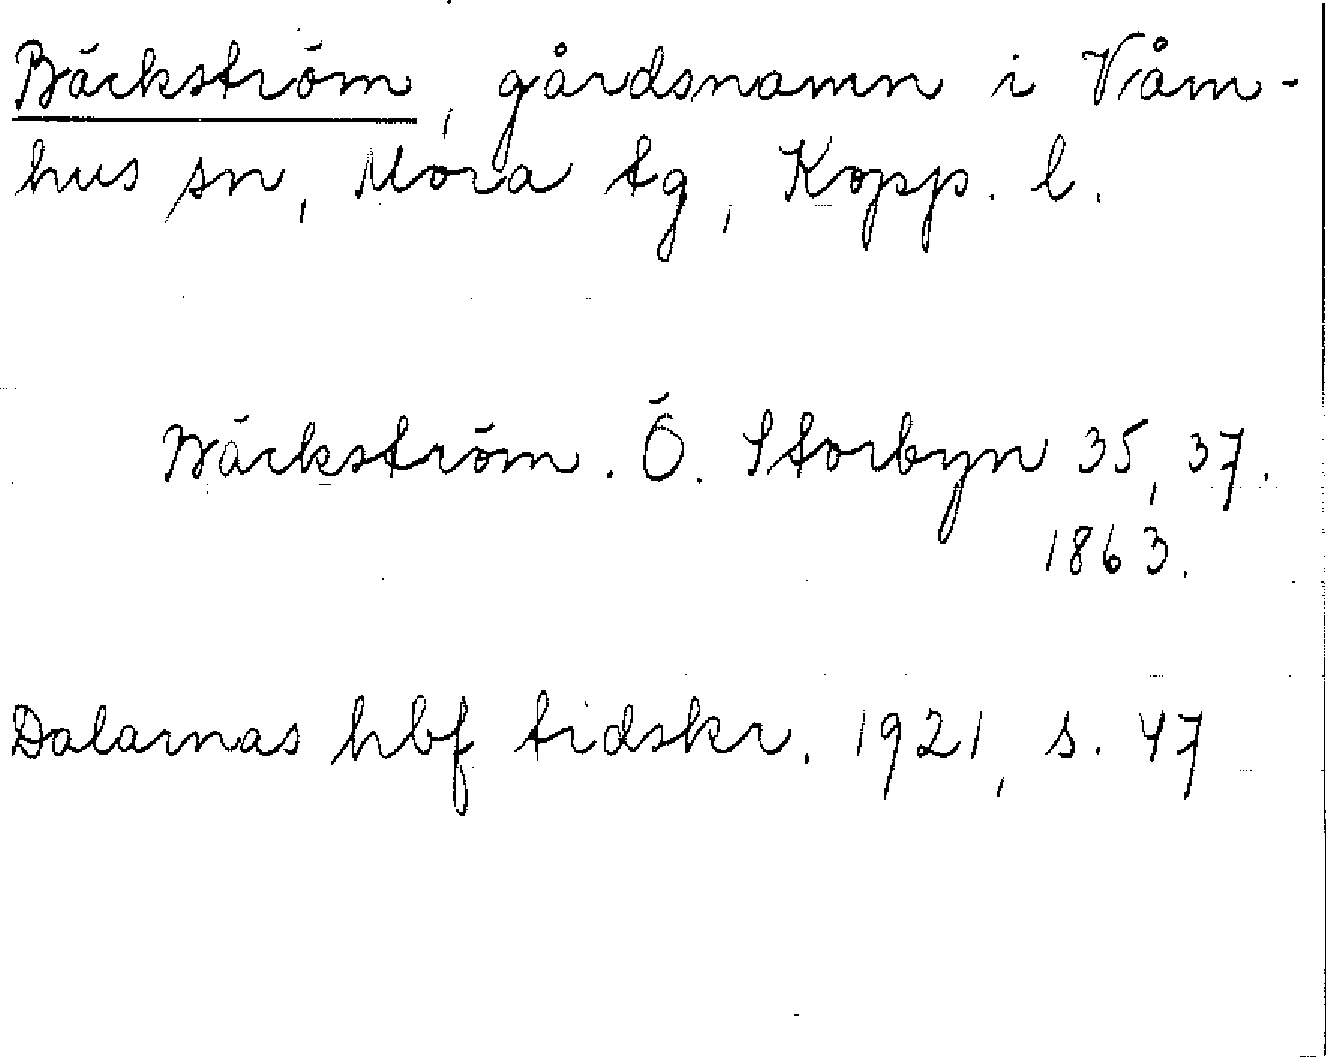 Bäckström, gårdsnamn i Våm-
hus sn, Mora tg, Kopp. l.
Bäckström. Ö. Storbyn 35, 37.
1863.
Dalarnas hbf tidskr. 1921, s. 47